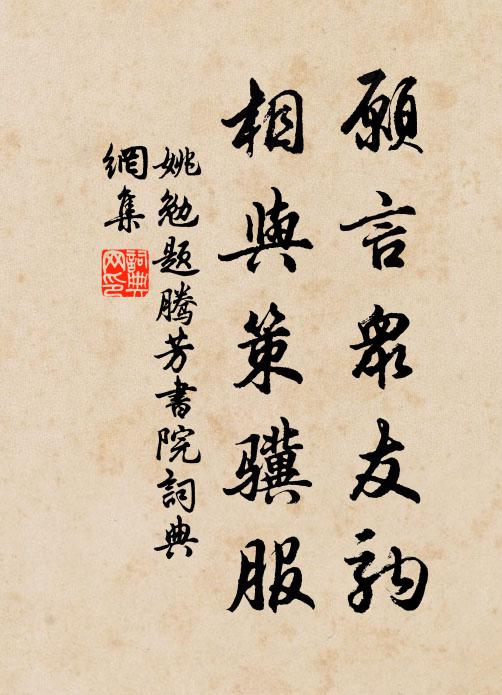 願言眾友
相與策驥服
姚勉題騰芳書院詞典
網集
詞典網印